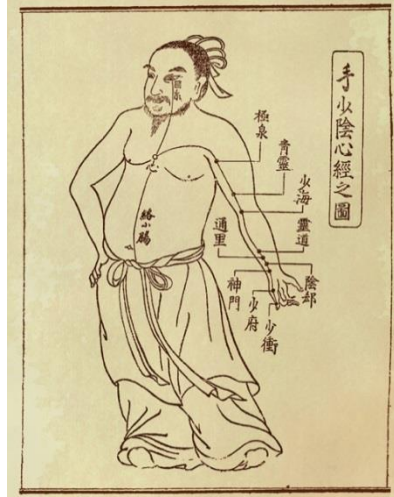 手少陰心經之圖
極泉
青靈
少海
靈道
通里
陰郄
神門
少府
少衝
心
絡小腸
目系